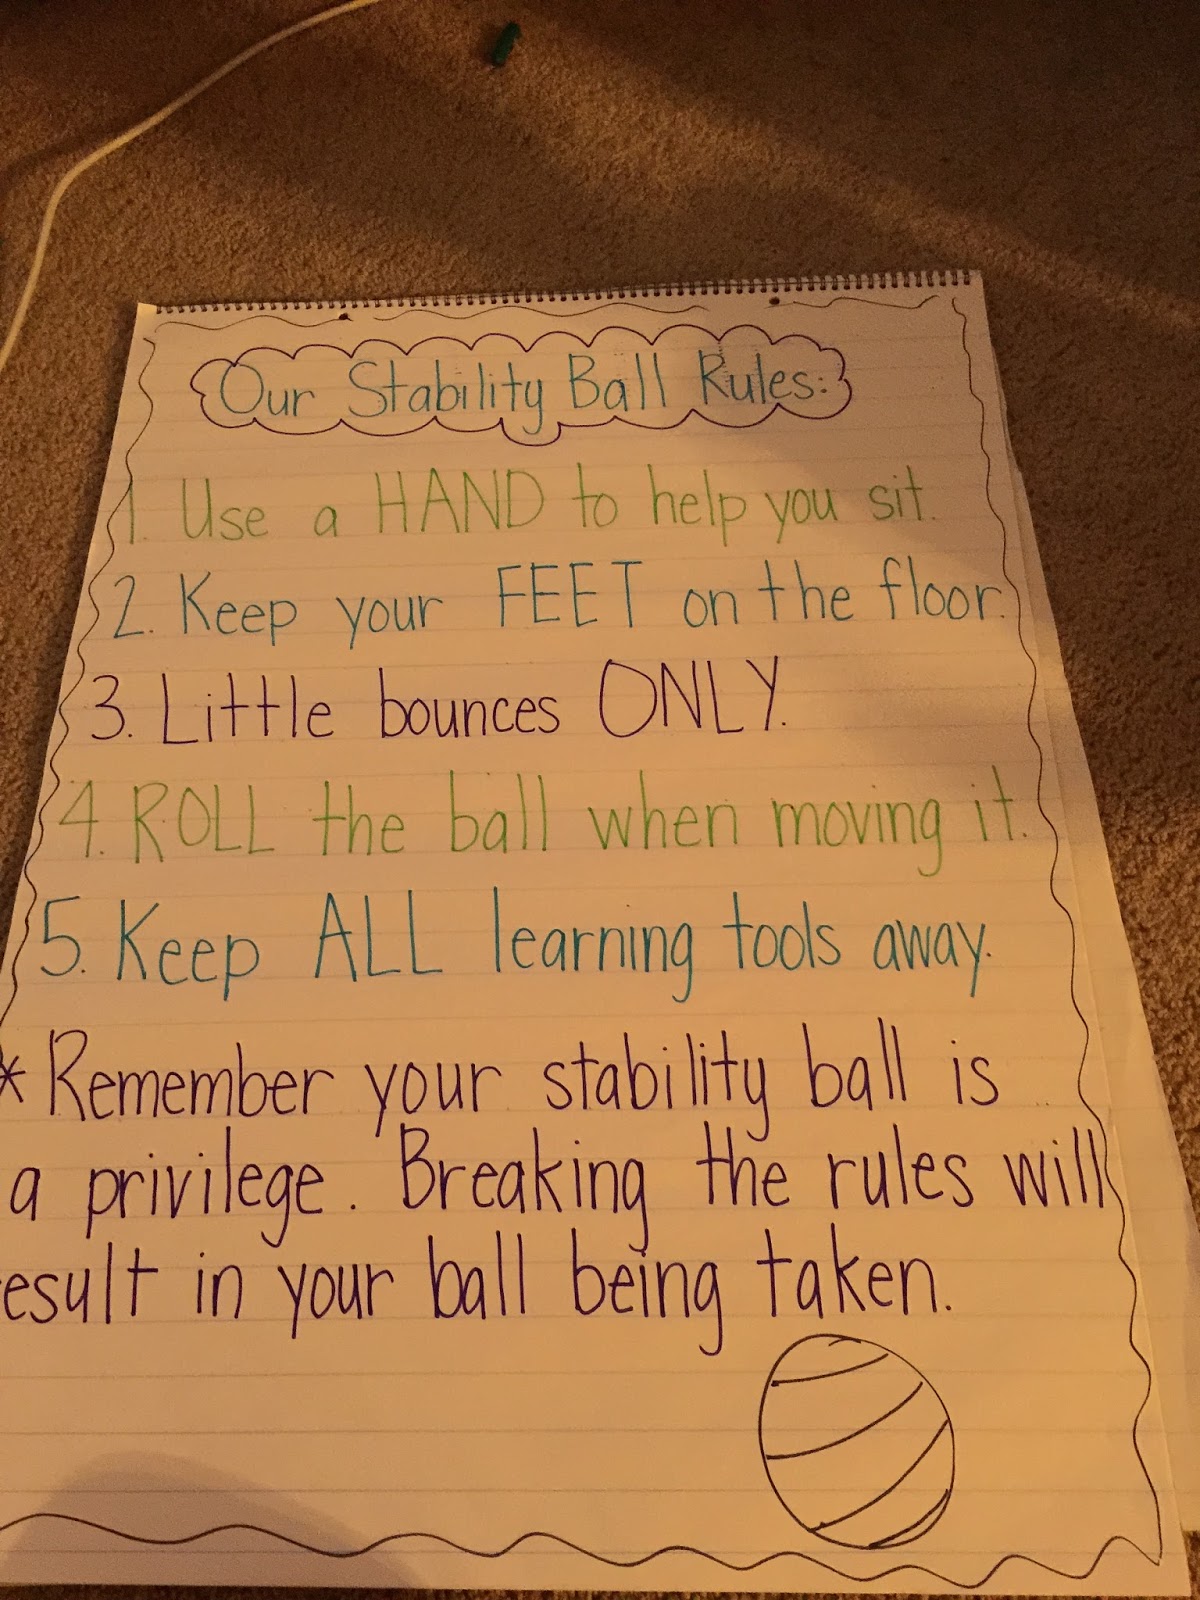 Our Stability Ball Rules:
1. Use a HAND to help you sit.
2. Keep your FEET on the floor.
3. Little bounces ONLY.
4. ROLL the ball when moving it.
5. Keep ALL learning tools away.
* Remember your stability ball is
a privilege. Breaking the rules will
result in your ball being taken.